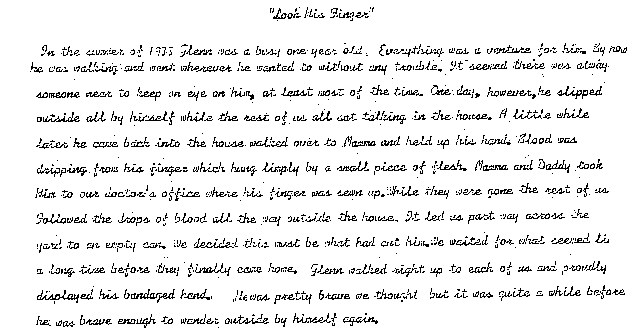 "Look His Finger"
In the summer of 1935 Glenn was a busy one year old. Everything was a venture for him. By now
he was walking and went wherever he wanted to without any trouble. It seemed there was alway
someone near to keep an eye on him, at least most of the time. One day, however, he slipped
outside all by himself while the rest of us all sat talking in the house. A little while
later he came back into the house walked over to Mamma and held up his hand. Blood was
dripping from his finger which hung limply by a small piece of flesh. Mamma and Daddy took
him to our doctor's office where his finger was sewn up. While they were gone the rest of us
followed the drops of blood all the way outside the house. It led us part way across the
yard to an empty can. We decided this must be what had cut him. We waited for what seemed li
a long time before they finally came home. Glenn walked right up to each of us and proudly
displayed his bandaged hand. He was pretty brave we thought but it was quite a while before
he was brave enough to wander outside by himself again.